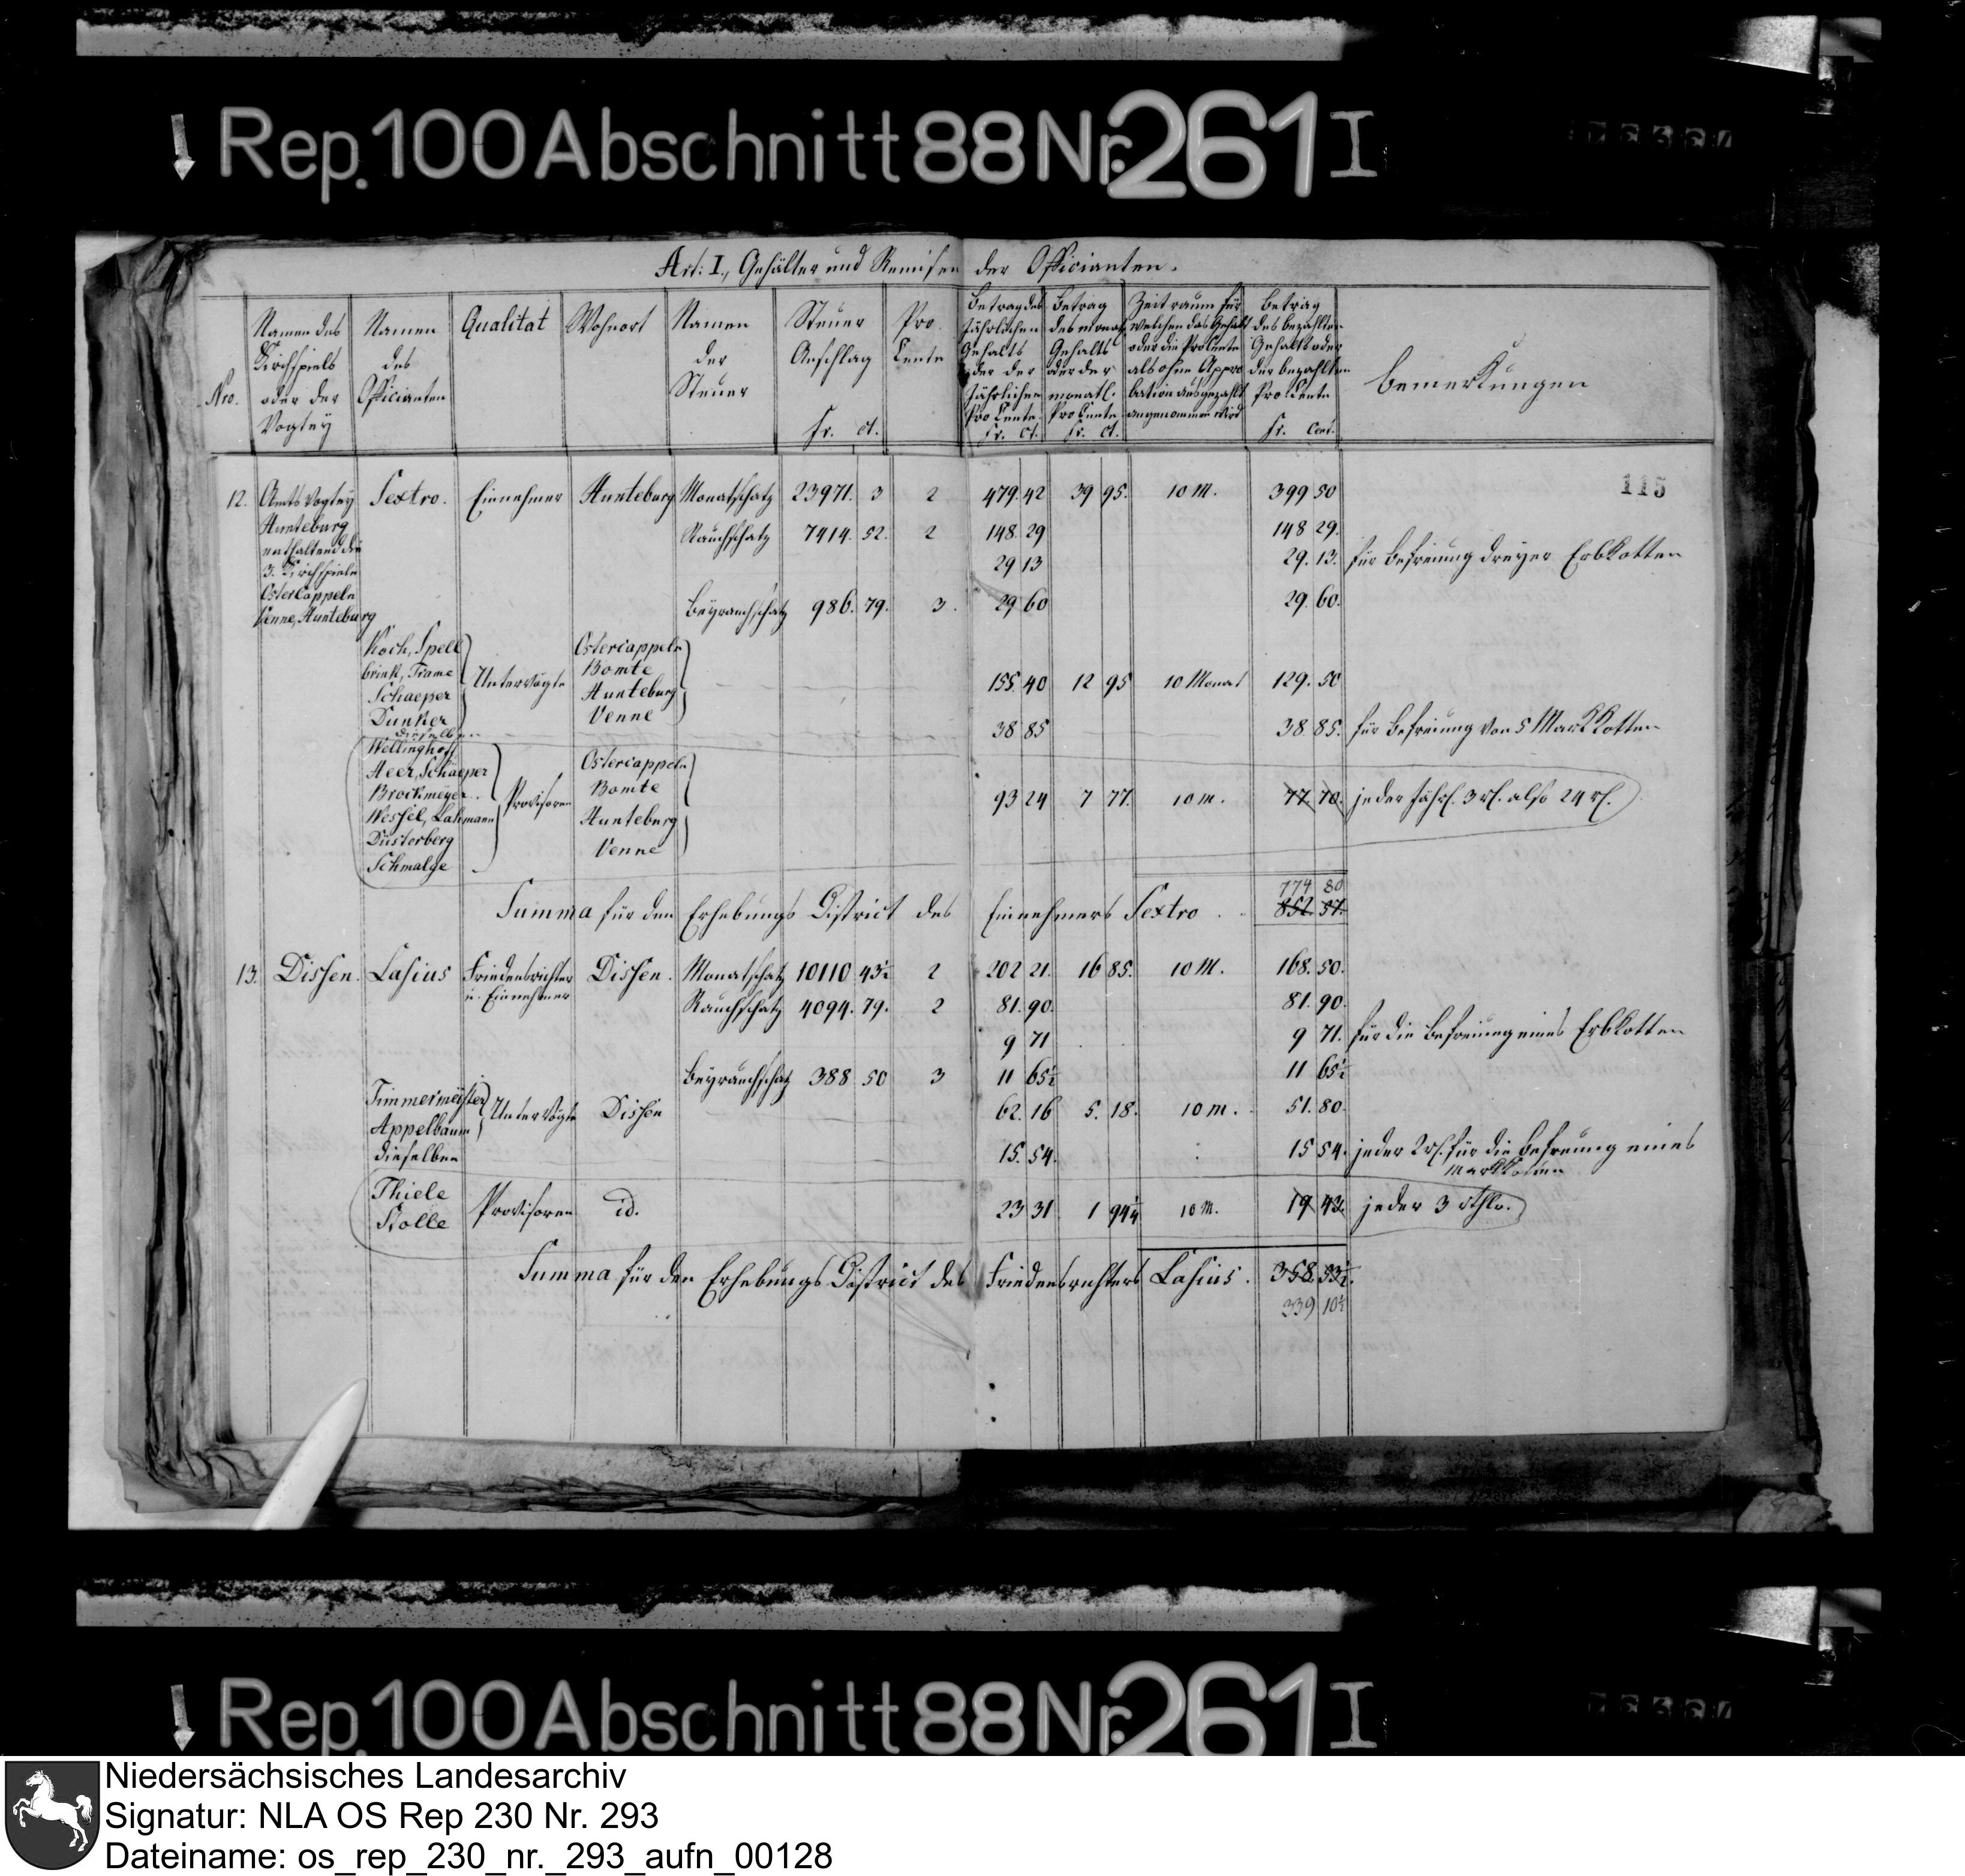 Rep. 100 Abschnitt 88 Nr. 261 I
Art: I., Gehälter und Remisen der Officianten.
Nro.
Namen des Kirchspiels oder der Vogtey
Namen des Officianten
Qualitat
Wohnort
Namen der Steuer
Steuer Anschlag fr. ct.
Pro Cente
Betrag des Jährlichen Gehalts oder der Jährlichen Pro Cente fr. ct.
Betrag des monat Gehalts oder der monatl. Pro Cente fr. ct.
Zeitraum für welchen das Gehalt oder die ProCente als ohne Appro bation ausgezahlt angenommen wird
Betrag des bezahlten Gehalts oder der bezahlten Pro Cente fr. Cent.
Bemerkungen
115
12. Amts Vogtey Sextro. Einnehmer Hunteburg Monatschatz 23971. 3 2 479. 42 39 95. 10 M. 399 50
Hunteburg Rauchschatz 7414. 52. 2 148. 29 148 29.
enthaltend die
3. Kirchspiele 29 13 29. 13. für Befreiung dreyer Erbkotten
Ostercappeln
Venne, Hunteburg Beyrauchschatz 986. 79. 3. 29 60 29. 60.
Koch, Spell Ostercappeln
brink, Frame Untervögte Bomte
Schaeper Hunteburg 155. 40 12 95 10 Monat 129. 50
Dunker Venne
dieselben 38 85 38. 85. für Befreiung von 5 MarkKotten
Wellinghoff Ostercappeln
Heer, Schaeper
Brockmeyer. Provisoren Bomte 93 24 7 77. 10 m. 77 70. jeder Jährl. 3 rl. also 24 rl.
Wessel, Lahmann Hunteburg
Düsterberg Venne
Schmalge
774 80
Summa für den Erhebungs District des Einnehmers Sextro . . 852. 57.
13. Dissen. Lasius Friedensrichter Dissen. Monatschatz 10110 43½ 2 202 21. 16 85. 10 M. 168. 50.
u. Einnehmer Rauchschatz 4094. 79. 2 81. 90. 81. 90.
9 71 9 71. für die Befreiung eines Erbkotten
Beyrauchschatz 388 50 3 11 65½ 11 65½
Timmermeister Untervögte Dissen 62. 16 5. 18. 10 m. 51. 80.
Appelbaum
dieselben 15. 54. 15 54. jeder 2 rl. für die Befreiung eines
Markkotten
Thiele Provisoren id. 23 31 1 94¼ 10 M. 19 43. jeder 3 rthlr.
Stolle
Summa für den Erhebungs District des Friedensrichters Lasius. 358. 53½.
339 10½
Rep. 100 Abschnitt 88 Nr. 261 I
Niedersächsisches Landesarchiv
Signatur: NLA OS Rep 230 Nr. 293
Dateiname: os_rep_230_nr._293_aufn_00128